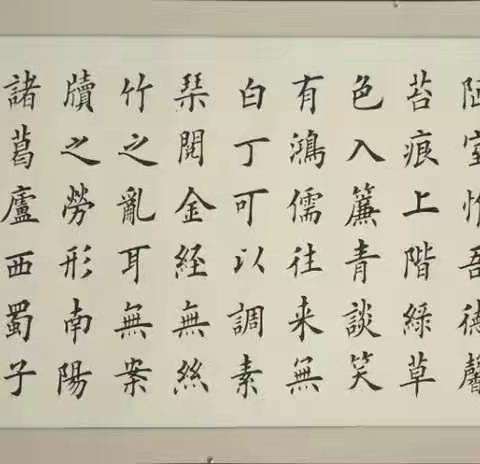 陋室惟吾德馨
苔痕上階綠草
色入簾青談笑
有鴻儒往来無
白丁可以調素
琹閱金経無絲
竹之亂耳無案
牘之勞形南陽
諸葛廬西蜀子